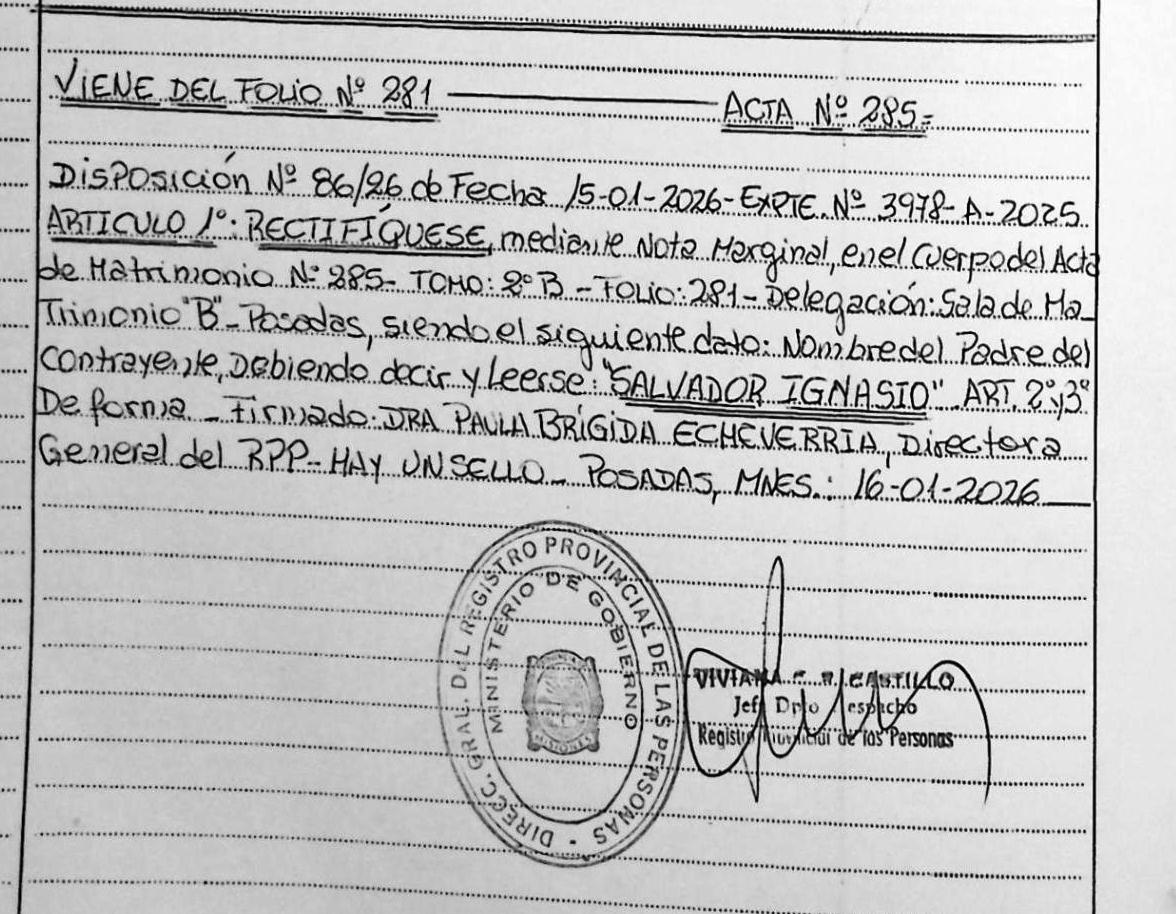 VIENE DEL FOLIO Nº 281 ACTA Nº 285=
Disposición Nº 86/26 de Fecha 15-01-2026-EXPTE. Nº 3978-A-2025.
ARTICULO 1º: RECTIFÍQUESE, mediante Nota Marginal, en el Cuerpo del Acta
de Matrimonio Nº 285- TOMO: 2º B - FOLIO: 281 - Delegación: Sala de Ma_
Trimonio "B"- Posadas, siendo el siguiente dato: Nombre del Padre del
Contrayente, Debiendo decir y Leerse: "SALVADOR IGNASIO" ART. 2º y 3º
De forma - Firmado: DRA PAULA BRÍGIDA ECHEVERRIA, Directora
General del RPP- HAY UN SELLO - POSADAS, MNES.: 16-01-2026
DIRECC. GRAL. DEL REGISTRO PROVINCIAL DE LAS PERSONAS -
MINISTERIO DE GOBIERNO
MISIONES
VIVIANA CASTILLO
Jef Dpto espacho
Registro Provincial de las Personas